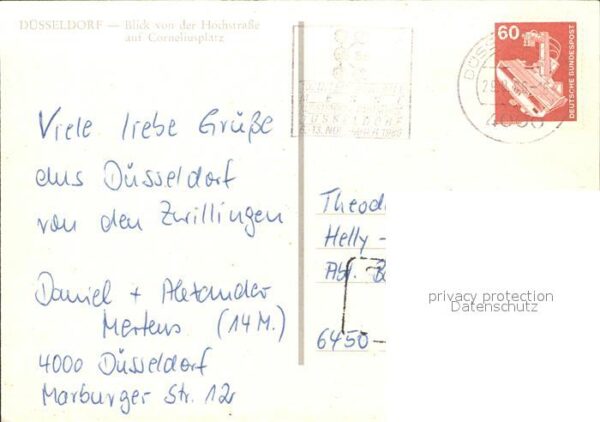 DÜSSELDORF — Blick von der Hochstraße
auf Corneliusplatz
60
DEUTSCHE BUNDESPOST
DÜSS
4000
DÜSSELDORF
Viele liebe Grüße
aus Düsseldorf
von den Zwillingen
Daniel + Alexander
Mertens (14 M.)
4000 Düsseldorf
Marburger Str. 12
Theod
Helly-
Abt.
6450-
privacy protection
Datenschutz